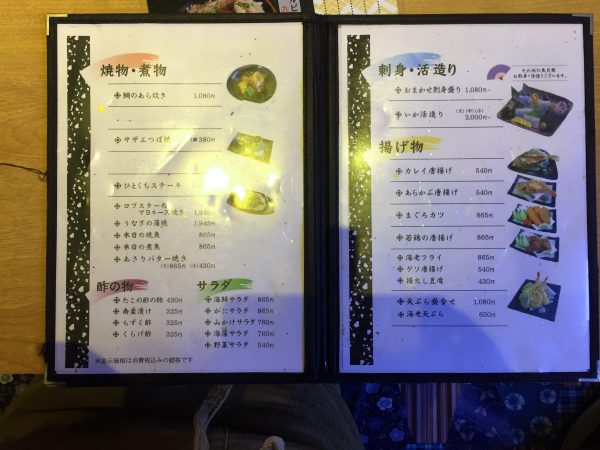 焼物・煮物
鯛のあら炊き 1,080円
サザエつぼ焼 380円
ひとくちステーキ
ロブスターの
マヨネーズ焼き 1,945円
うなぎの蒲焼 1,945円
本日の焼魚 865円
本日の煮魚 865円
あさりバター焼き
(大)865円 (小)430円
酢の物
たこの酢の物 430円
南蛮漬け 325円
もずく酢 325円
くらげ酢 325円
サラダ
海鮮サラダ 865円
かにサラダ 865円
山かけサラダ 760円
海藻サラダ 760円
野菜サラダ 540円
※表示価格は消費税込みの価格です
刺身・活造り
その他の魚貝類
お刺身・活造りございます。
おまかせ刺身盛り 1,080円~
いか活造り (大)(中)(小)
2,000円~
揚げ物
カレイ唐揚げ 540円
あらかぶ唐揚げ 540円
まぐろカツ 865円
若鶏の唐揚げ 865円
海老フライ 865円
ゲソ唐揚げ 540円
揚出し豆腐 430円
天ぷら盛合せ 1,080円
海老天ぷら 650円